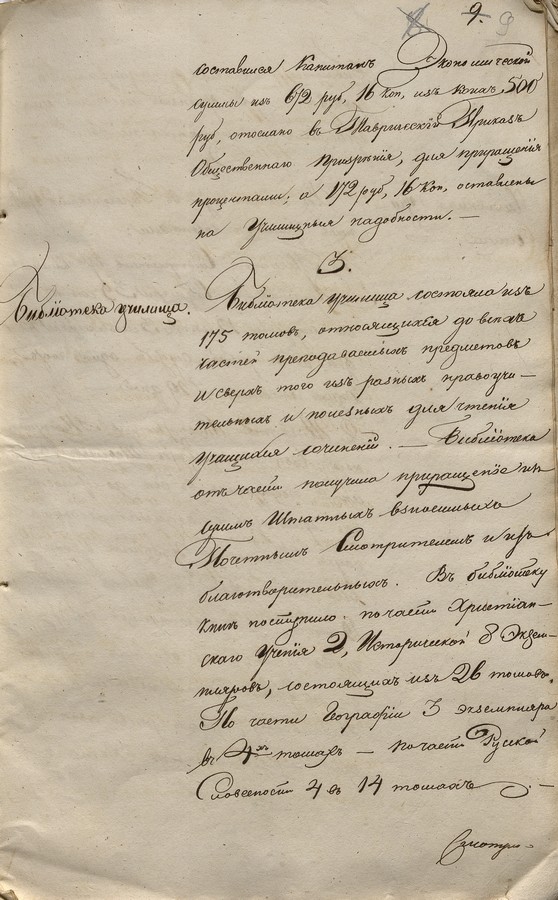 9. 9
составился Капиталъ Экономической
суммы изъ 672 руб, 16 коп, изъ коихъ, 500
руб, отослано въ Таврическій Приказъ
Общественнаго Призрѣнія, для приращенія
процентами; а 172 руб, 16 Коп, оставлены
на Училищныя надобности. —
3.
Библіотека училища.
Библіотека училища состояла изъ
175 томовъ, относящихся до всѣхъ
частей преподаваемыхъ предметовъ
и сверхъ того изъ разныхъ правоучи-
тельныхъ и полезныхъ для чтенія
учащихся сочиненій. — Библіотека
отъ части получила приращеніе изъ
суммъ Штатныхъ взносимыхъ
Почетнымъ Смотрителемъ и изъ
благотворительныхъ. Въ библіотеку
книгъ поступило по части Христіан-
скаго Ученія 2, Исторической 8 Экзем-
пляровъ, состоящихъ изъ 26 томовъ.
По части Географіи 3 экземпляра
въ 4хъ томахъ — по части Руской
Словесности 4 въ 14 томахъ. —